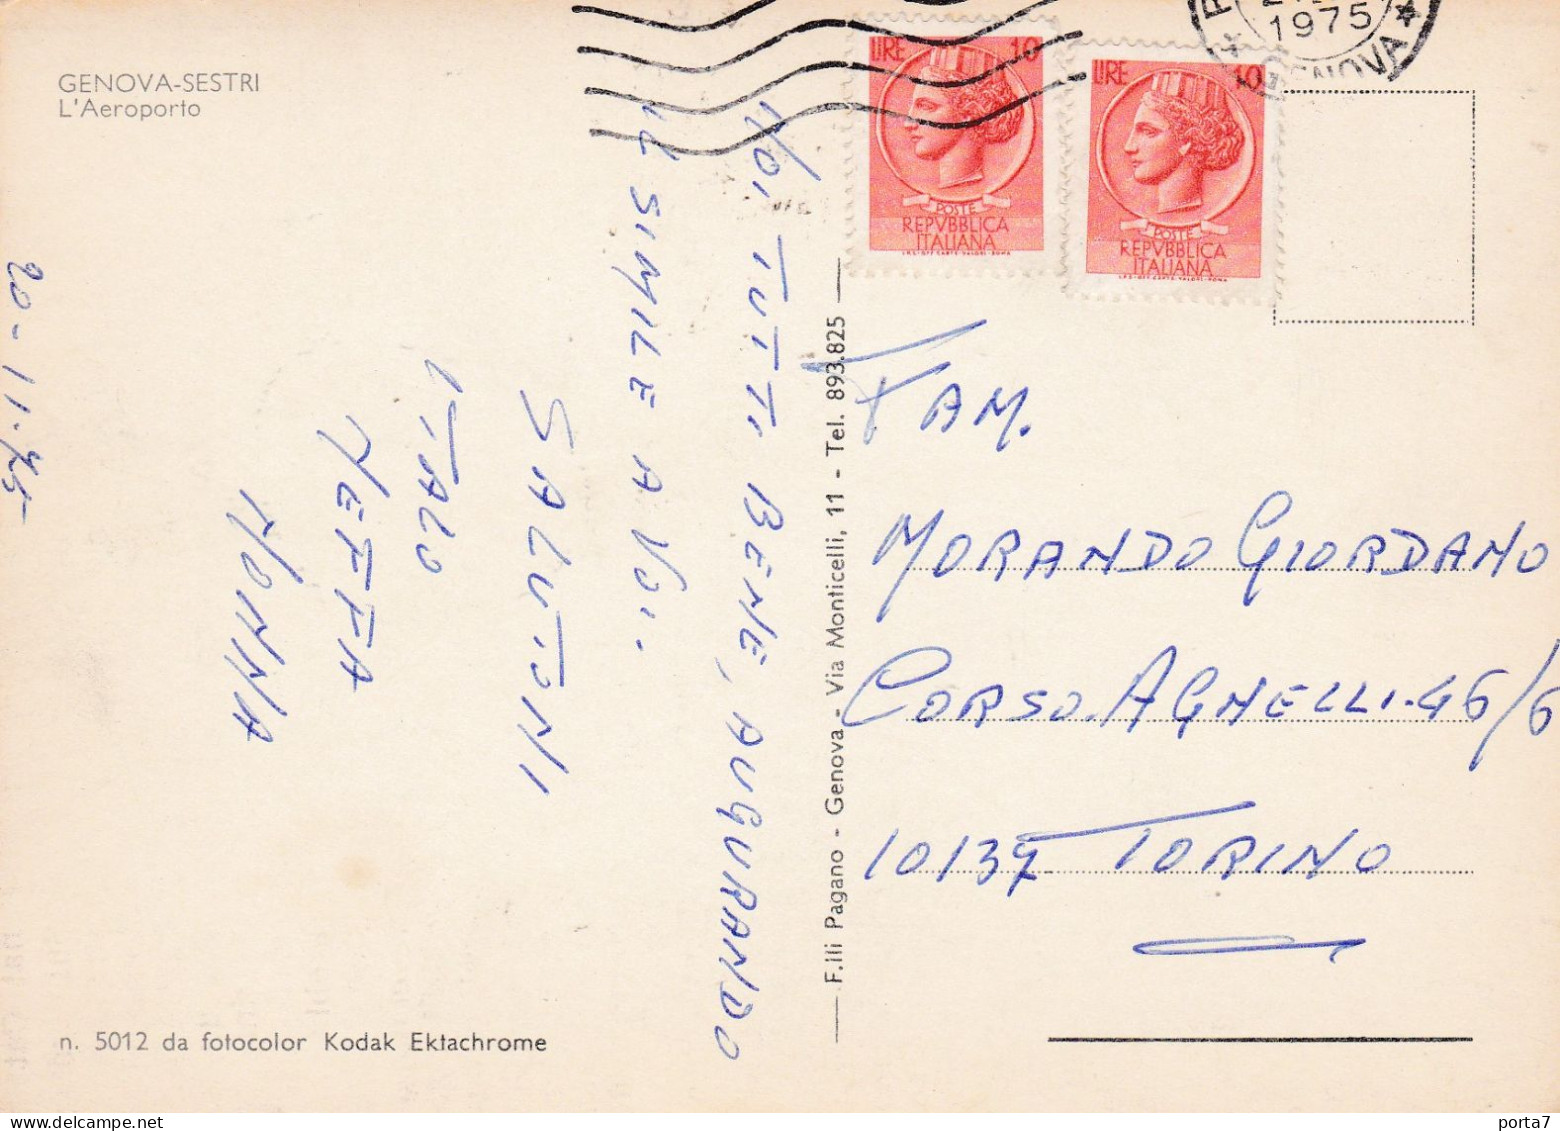 GENOVA-SESTRI
L'Aeroporto
20-11-75
NOI TUTTI BENE, AUGURANDO
IL SIMILE A VOI.
SALUTONI
ITALO
NONNA
n. 5012 da fotocolor Kodak Ektachrome
F.lli Pagano - Genova - Via Monticelli, 11 - Tel. 893.825
1975
GENOVA
LIRE 10
POSTE
REPVBBLICA
ITALIANA
I.P.S.-OFF. CARTE-VALORI-ROMA
LIRE 10
POSTE
REPVBBLICA
ITALIANA
I.P.S.-OFF. CARTE-VALORI-ROMA
FAM.
MORANDO GIORDANO
CORSO AGNELLI-46/6
10137 TORINO
porta7